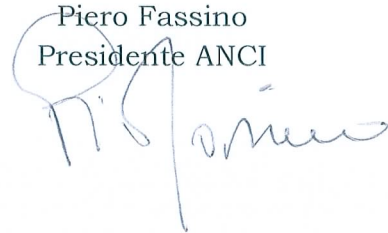 Piero Fassino
Presidente ANCI